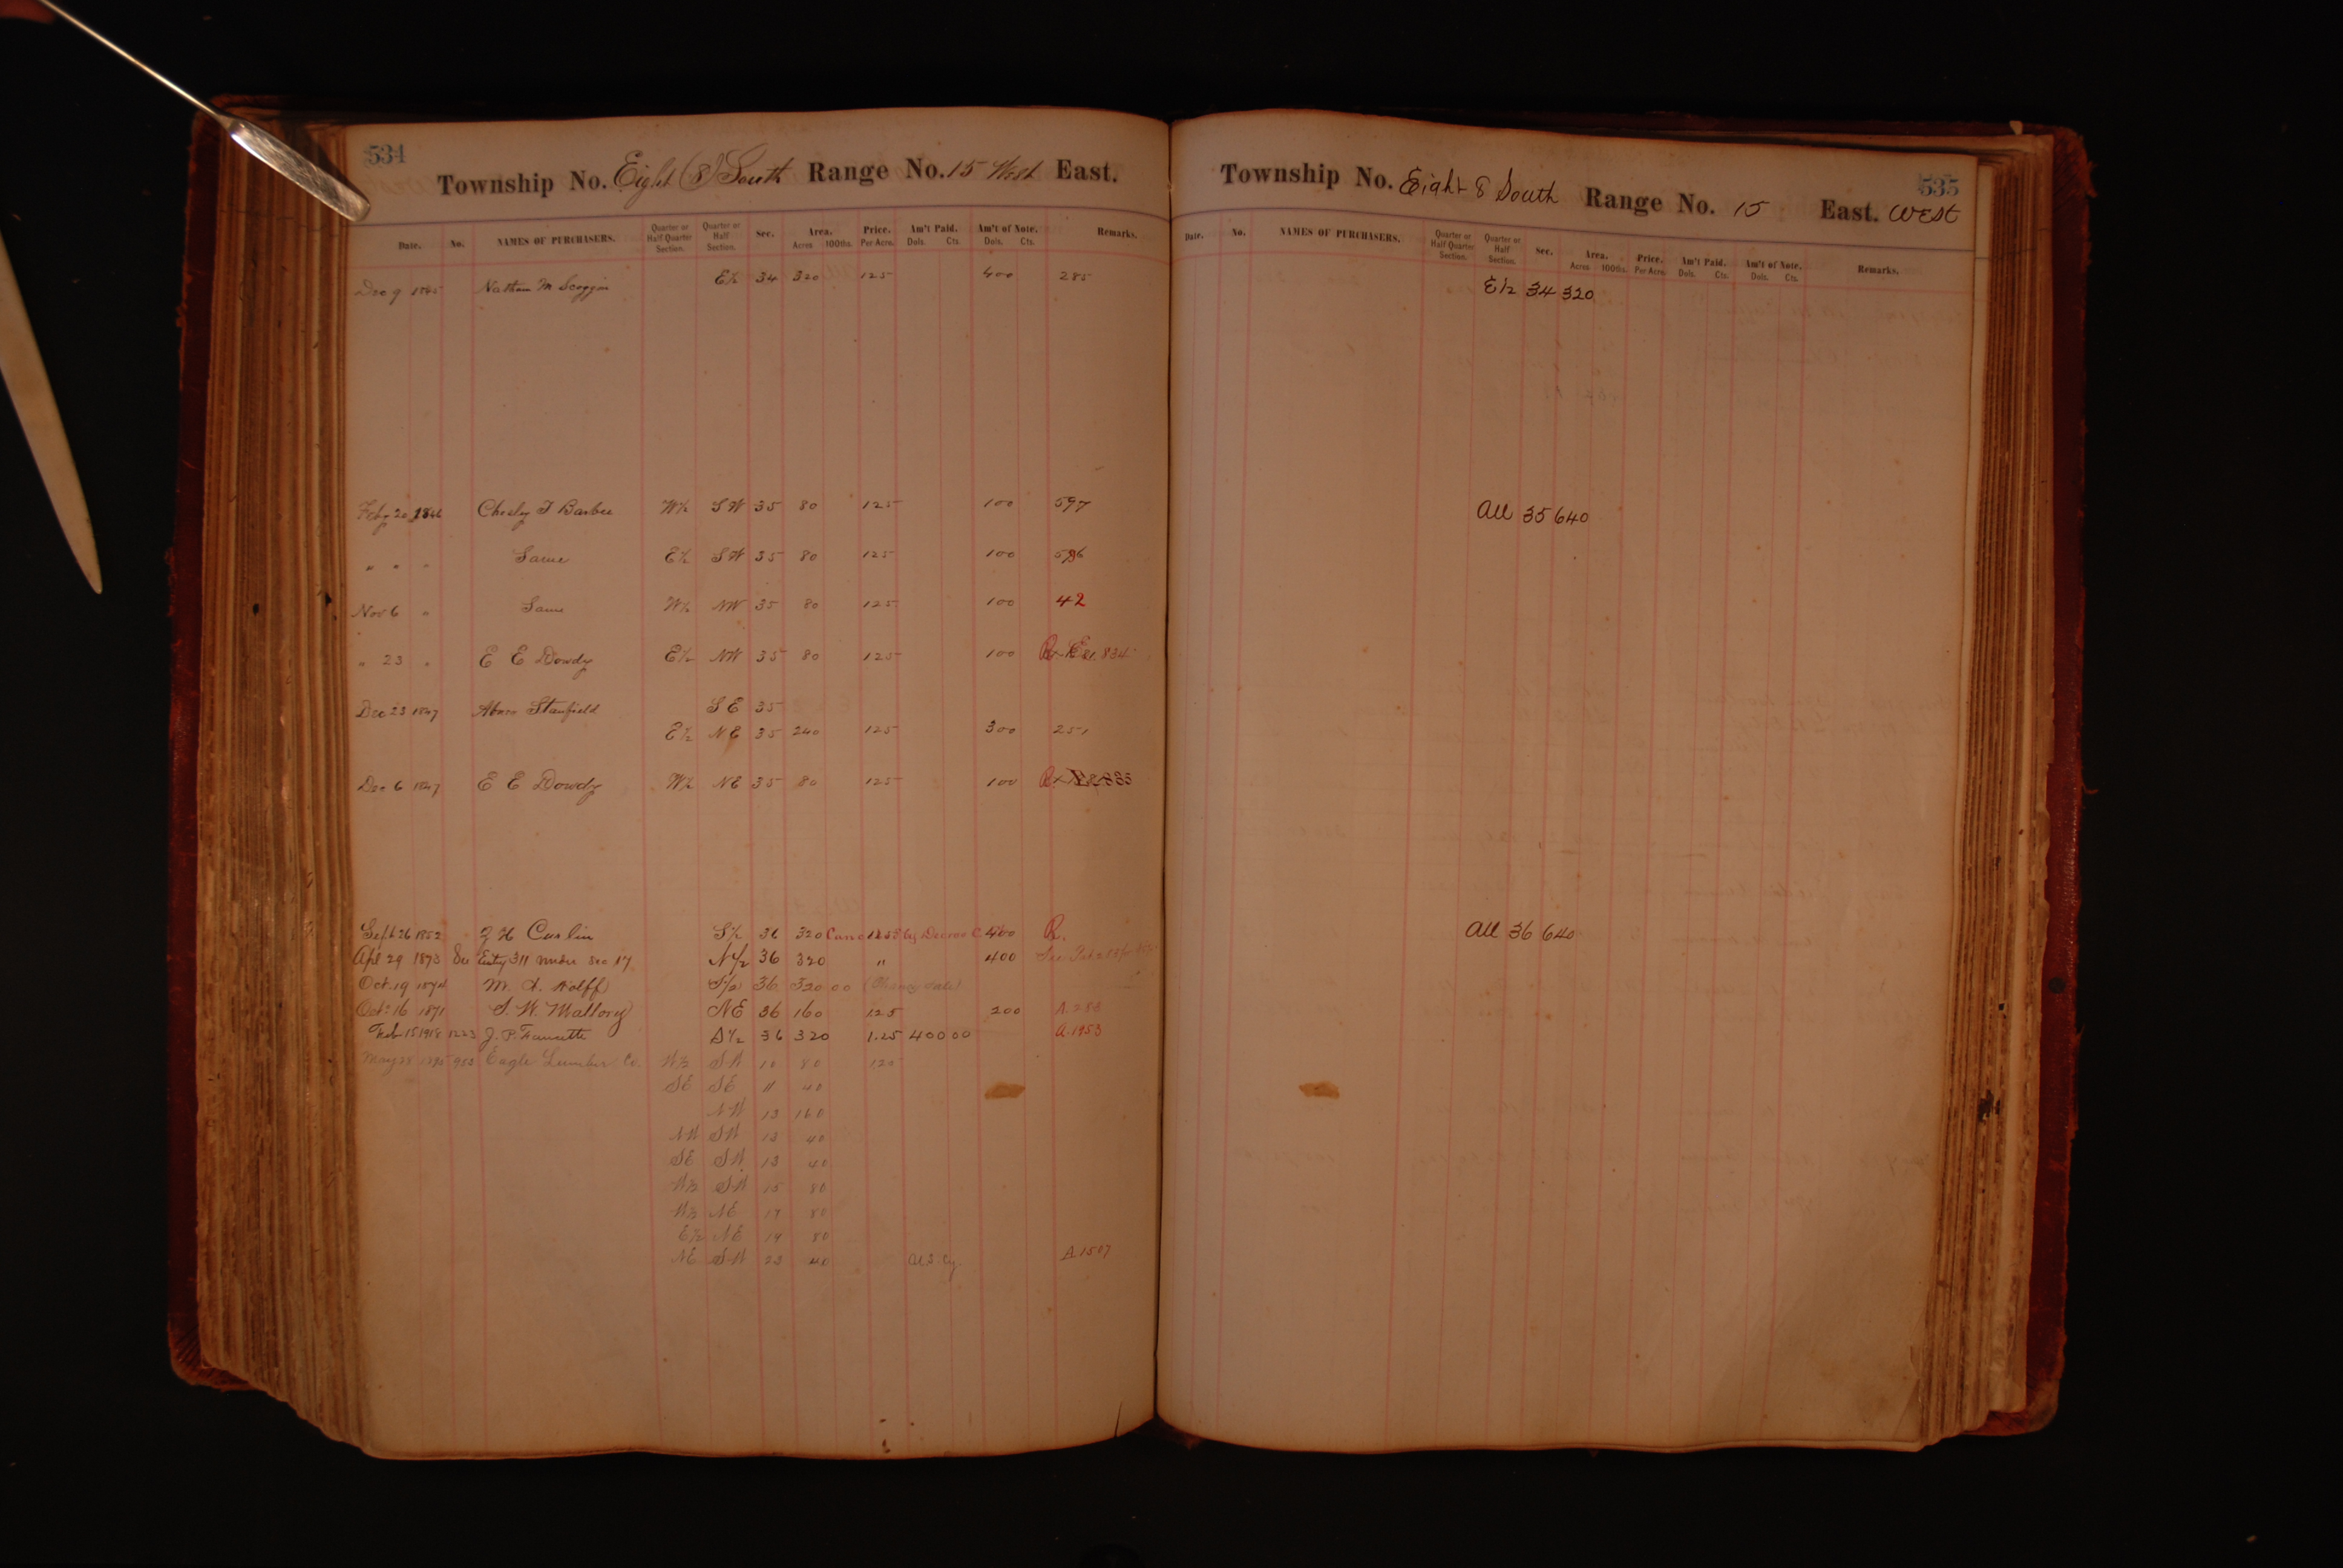 534
Township No. Eight (8) South Range No. 15 West East.
Date. No. NAMES OF PURCHASERS. Quarter or Half Quarter Section. Quarter or Half Section. Sec. Area. Acres 100ths. Price. Per Acre. Am't Paid. Dols. Cts. Am't of Note. Dols. Cts. Remarks.
Dec 9 1845 Nathan M Scoggin E½ 34 320 125 400 285
Feby 20 1846 Chesley T Barbee W½ SW 35 80 125 100 597
" " " Same E½ SW 35 80 125 100 596
Nov 6 " Same W½ NW 35 80 125 100 42
" 23 " E E Dowdy E½ NW 35 80 125 100 834
Dec 23 1847 Abner Stanfield SE 35
E½ NE 35 240 125 300 251
Dec 6 1847 E E Dowdy W½ NE 35 80 125 100
Sept 26 1852 Carlin S½ 36 320 by Decree 400 R.
Apl 29 1873 See Entry 311 under sec 17 N½ 36 320 " 400 See
Oct. 19 M. Wolff S½ 36 320 00
Oct 16 1871 S. W. Mallory NE 36 160 125 200 A. 283
Feb. 15 1918 1223 J. P. Faucette S½ 36 320 1.25 400 00 A. 1953
May 28 1895 Eagle Lumber Co. W½ SW 10 80 125
SE SE 11 40
NW 13 160
NW SW 13 40
SE SW 13 40
W½ SW 15 80
W½ NE 19 80
E½ NE 19 80
NE SW 23 40 A 1507
535
Township No. Eight 8 South Range No. 15 East. West
Date. No. NAMES OF PURCHASERS. Quarter or Half Quarter Section. Quarter or Half Section. Sec. Area. Acres 100ths. Price. Per Acre. Am't Paid. Dols. Cts. Am't of Note. Dols. Cts. Remarks.
E½ 34 320
All 35 640
All 36 640